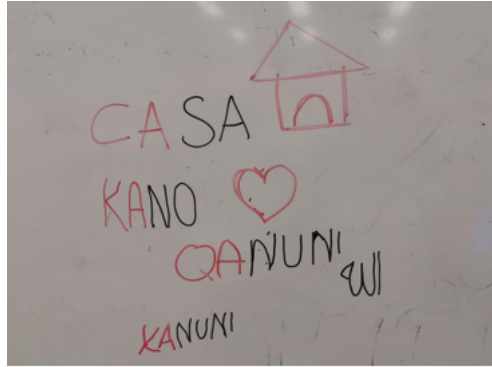 CASA
KANO
QANUNI
KANUNI